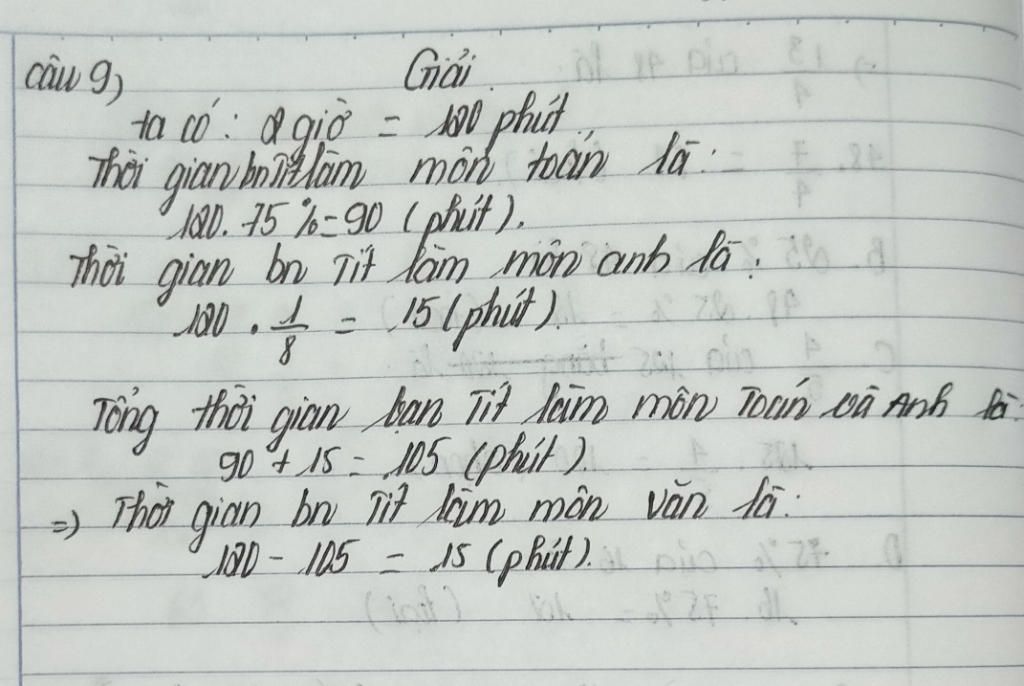 Câu 9) Giải.
ta có: 2 giờ = 120 phút
Thời gian bn Tít làm môn toán là:
120. 75% = 90 (phút).
Thời gian bn Tít làm môn anh là:
120 . 1/8 = 15 (phút).
Tổng thời gian bạn Tít làm môn Toán và Anh là:
90 + 15 = 105 (phút).
=) Thời gian bn Tít làm môn văn là:
120 - 105 = 15 (phút).